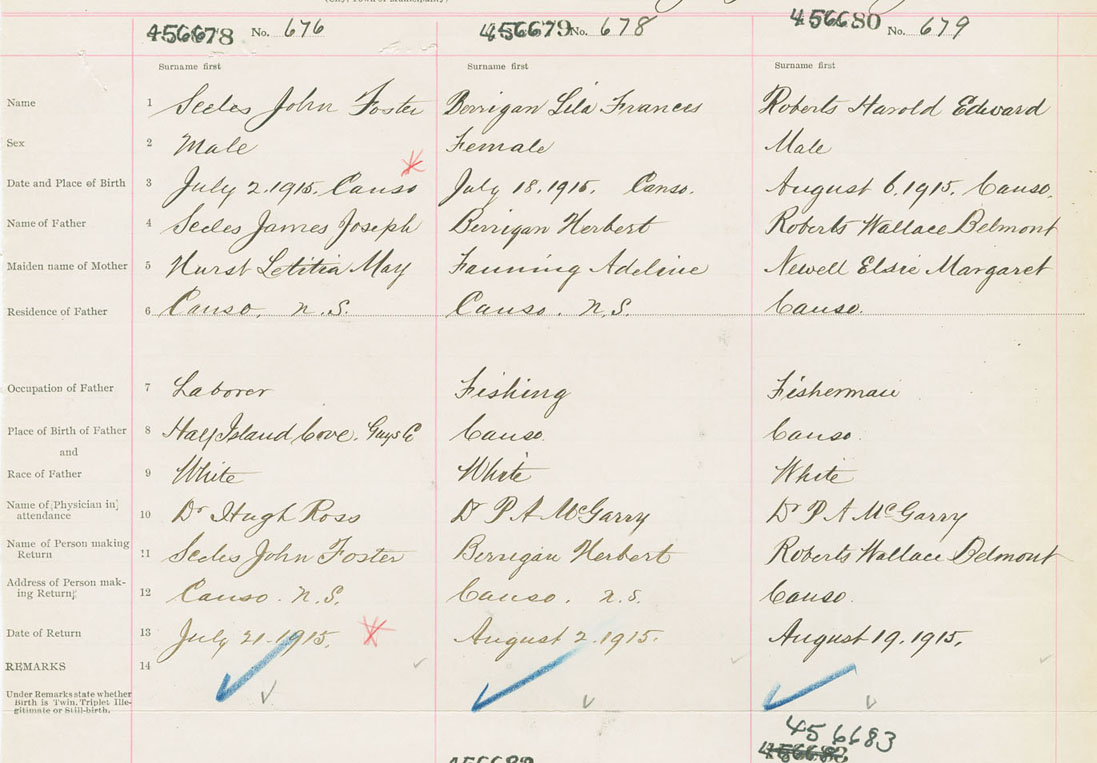 (City, Town or Municipality)
456678 No. 676 456679 No. 678 456680 No. 679
Surname first Surname first Surname first
Name 1 Seeles John Foster Berrigan Lila Frances Roberts Harold Edward
Sex 2 Male Female Male
Date and Place of Birth 3 July 2.1915. Canso July 18.1915. Canso. August 6.1915. Canso.
Name of Father 4 Seeles James Joseph Berrigan Herbert Roberts Wallace Belmont
Maiden name of Mother 5 Hurst Letitia May Fanning Adeline Newell Elsie Margaret
Residence of Father 6 Canso. N.S. Canso. N.S. Canso.
Occupation of Father 7 Laborer Fishing Fisherman
Place of Birth of Father 8 Half Island Cove. Guys Co Canso. Canso.
and
Race of Father 9 White White White
Name of Physician in
attendance 10 Dr Hugh Ross Dr P A McGarry Dr P A McGarry
Name of Person making
Return 11 Seeles John Foster Berrigan Herbert Roberts Wallace Belmont
Address of Person mak-
ing Return 12 Canso. N.S. Canso. N.S. Canso.
Date of Return 13 July 21.1915. August 2.1915. August 19.1915.
REMARKS 14
Under Remarks state whether
Birth is Twin, Triplet Ille-
gitimate or Still-birth.
456683